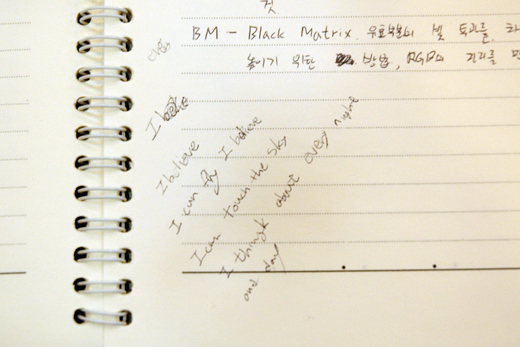 것
BM - Black Matrix. 유효부분의 셀 투과를
높이기 위한 방법, RGB의
I believe
I can fly I believe
I can touch the sky
I thingk about every night
and day